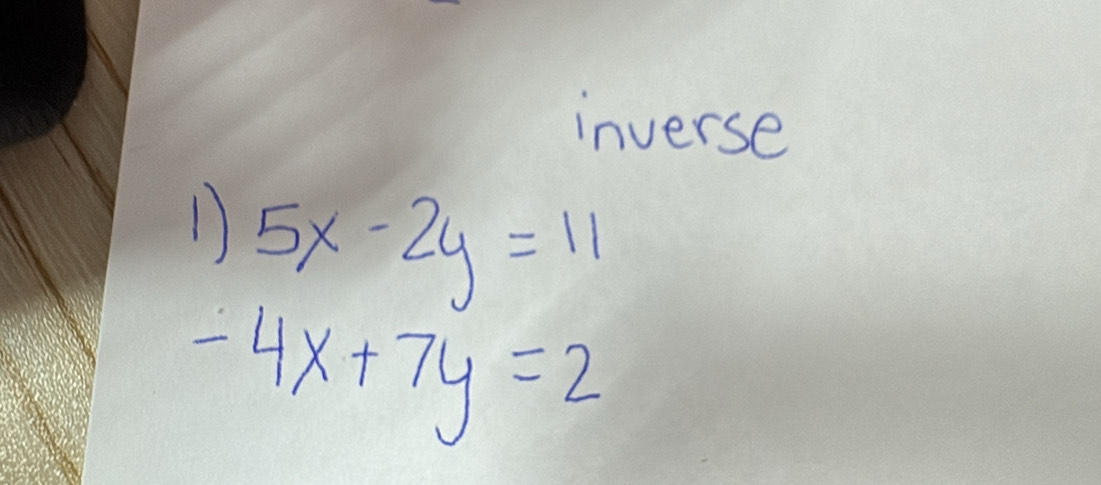 inverse
1) 5x - 2y = 11
- 4x + 7y = 2